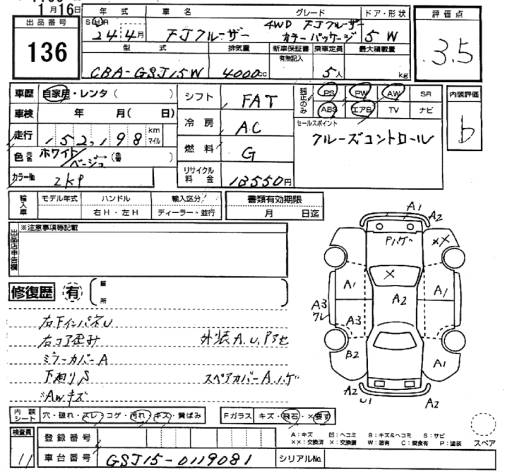 月16日
出品番号
136
年式 車名 グレード ドア・形状
24年4月 FJクルーザー 4WD FJクルーザー カラーパッケージ 5 W
型式 排気量 新車保証書 有無記入 乗車定員 最大積載量
CBA-GSJ15W 4000cc 5人 kg
評価点
3.5
車歴 自家用・レンタ( )
車検 年 月( 日)
走行 152,198 km マイル
色 ホワイト/ベージュ
カラーNo 2KP
シフト FAT
冷房 AC
燃料 G
リサイクル料金 13550円
PS PW AW SR
ABS エアB TV ナビ
セールスポイント
クルーズコントロール
内装評価
b
輸入車 モデル年式 ハンドル 輸入区分 書類有効期限
右H・左H ディーラー・並行 月 日迄
出品店申告欄
※注意事項等記載
修復歴 有 箇所
右コア歪み 外装A.U.アセ
ミラーカバーA
下廻りS スペアカバーA.ハゲ
AWキズ
A1
A2
ハゲ
XX
A2
A1
X
A2
A1
A3
A3
B2
A1
A2
U1
A2
内装シート 穴・破れ・スレ・コゲ・汚れ・キズ・黄ばみ
Fガラス キズ・飛石・×要す
A:キズ 凹:ヘコミ B:キズ&ヘコミ S:サビ
××:交換済 ×:交換要 W:波有 C:腐食有 P:塗装
スペア
検査員
11
登録番号
車台番号 GSJ15-0119081 シリアルNo.